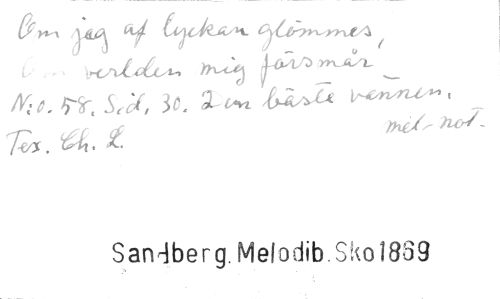 Om jag af lyckan glömmes,
Om verlden mig försmår
N:o. 58. Sid. 30. Den bäste vännen.
mel-not.
Tex. Ch. L.
Sandberg. Melodib. Sko1869